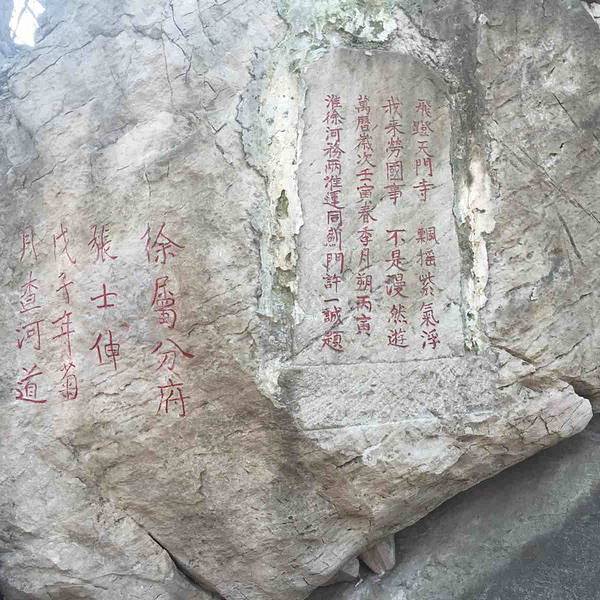 飛登天門寺 飄摇紫氣浮
我來勞國事 不是漫然遊
萬曆歲次壬寅春季月朔丙寅
淮徐河務兩淮運同蒯門許一誠題
徐屬分府
張士伸
戊子年菊
月查河道